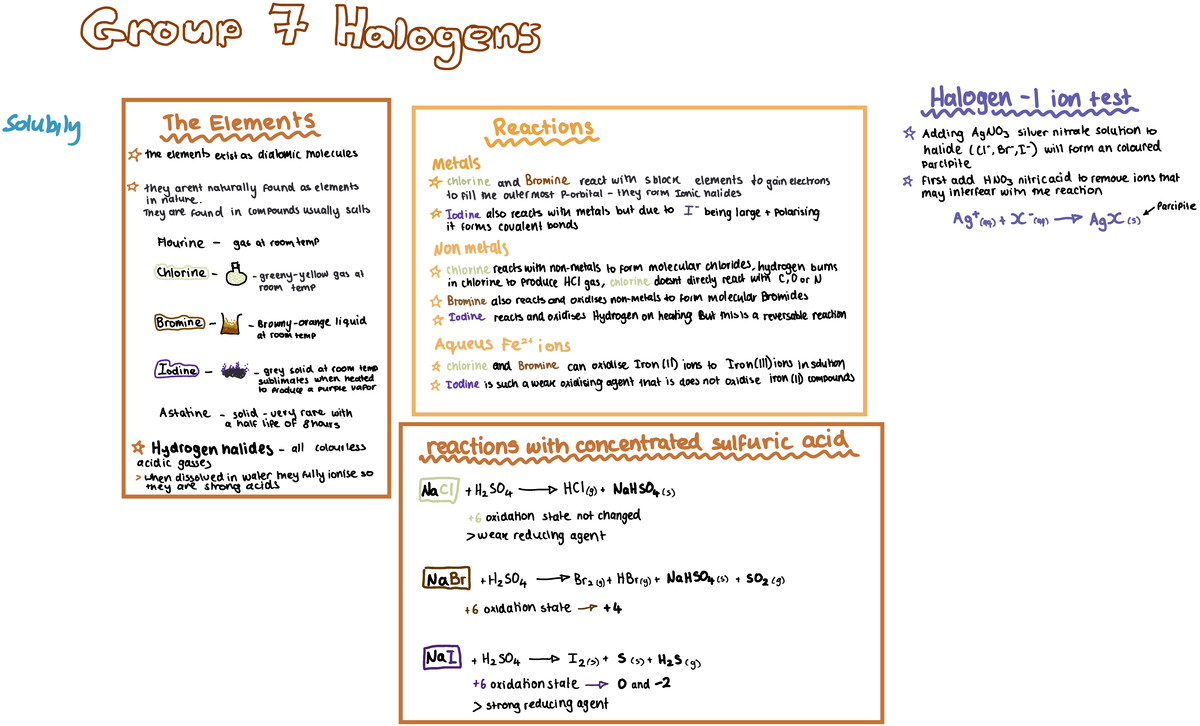 Group 7 Halogens
Solubily
The Elements
the elements exist as diatomic molecules
they arent naturally found as elements
in nature.
They are found in compounds usually salts
Flourine - gas at room temp
Chlorine - - greeny-yellow gas at
room temp
Bromine - - Browny-orange liquid
at room temp
Iodine - - grey solid at room temp
sublimates when heated
to produce a purple vapor
Astatine - solid - very rare with
a half life of 8 hours
Hydrogen halides - all colourless
acidic gasses
> when dissolved in water they fully ionise so
they are strong acids
Reactions
Metals
Chlorine and Bromine react with s block elements to gain electrons
to fill the outermost p-orbital - they form Ionic halides
Iodine also reacts with metals but due to I⁻ being large + polarising
it forms covalent bonds
Non metals
Chlorine reacts with non-metals to form molecular chlorides, hydrogen burns
in chlorine to produce HCl gas, chlorine doesnt directly react with C, O or N
Bromine also reacts and oxidises non-metals to form molecular Bromides
Iodine reacts and oxidises Hydrogen on heating But this is a reversable reaction
Aqueus Fe²⁺ ions
chlorine and Bromine can oxidise Iron(II) ions to Iron(III) ions in solution
Iodine is such a weak oxidising agent that is does not oxidise iron (II) compounds
reactions with concentrated sulfuric acid
NaCl + H₂SO₄ → HCl(g) + NaHSO₄(s)
+6 oxidation state not changed
> weak reducing agent
NaBr + H₂SO₄ → Br₂(g) + HBr(g) + NaHSO₄(s) + SO₂(g)
+6 oxidation state → +4
NaI + H₂SO₄ → I₂(s) + S(s) + H₂S(g)
+6 oxidation state → 0 and -2
> strong reducing agent
Halogen -1 ion test
Adding AgNO₃ silver nitrate solution to
halide (Cl⁻, Br⁻, I⁻) will form an coloured
parcipite
First add HNO₃ nitric acid to remove ions that
may interfear with the reaction
Parcipile
Ag⁺(aq) + X⁻(aq) → AgX(s)